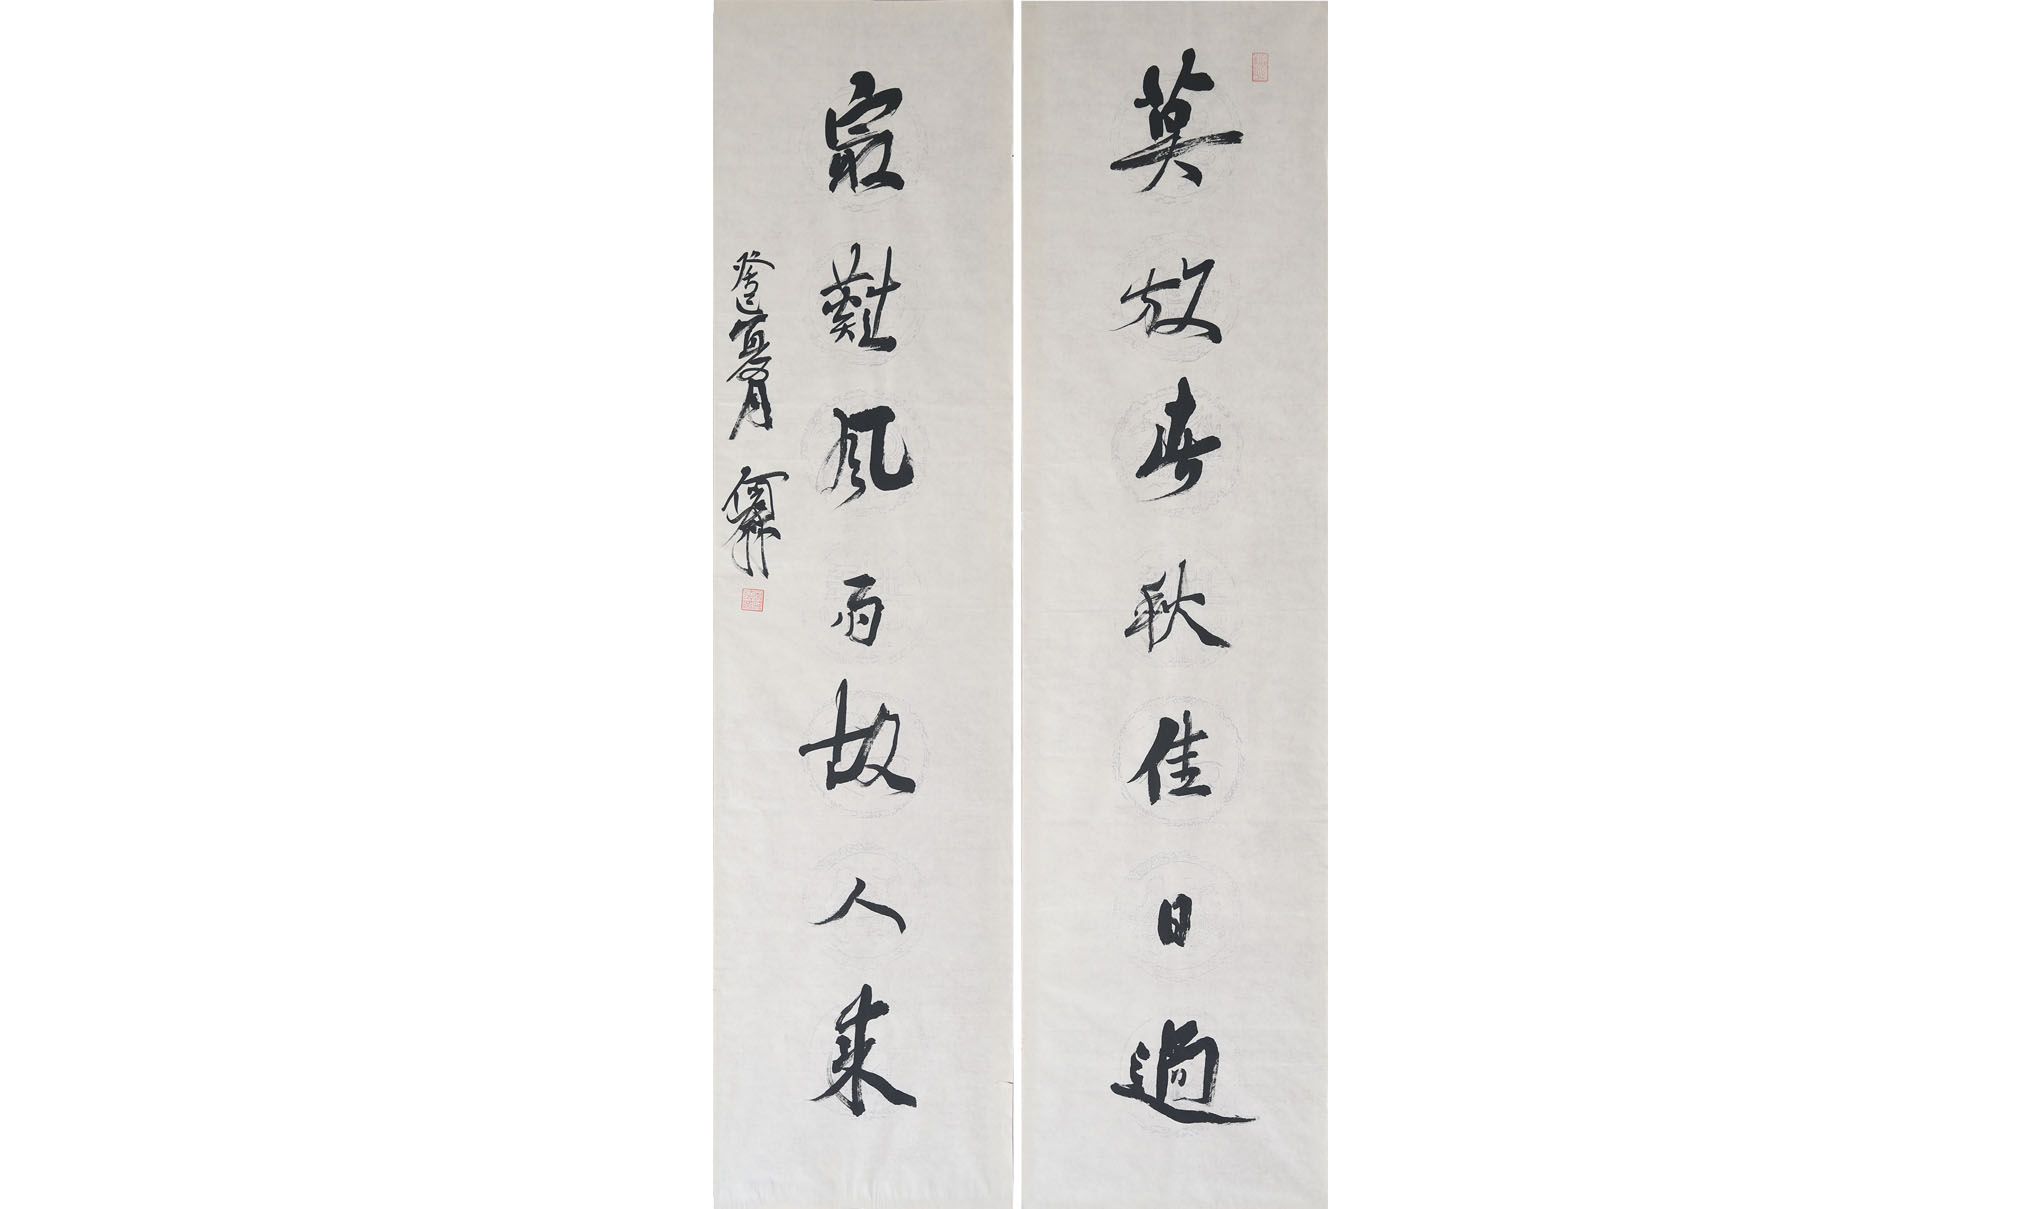 莫放春秋佳日過
最難風雨故人來
癸巳夏月